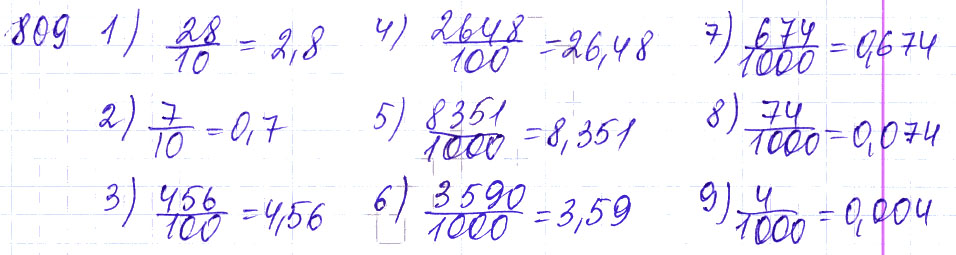 809 1) 28/10 = 2,8 4) 2648/100 = 26,48 7) 674/1000 = 0,674
2) 7/10 = 0,7 5) 8351/1000 = 8,351 8) 74/1000 = 0,074
3) 456/100 = 4,56 6) 3590/1000 = 3,59 9) 4/1000 = 0,004